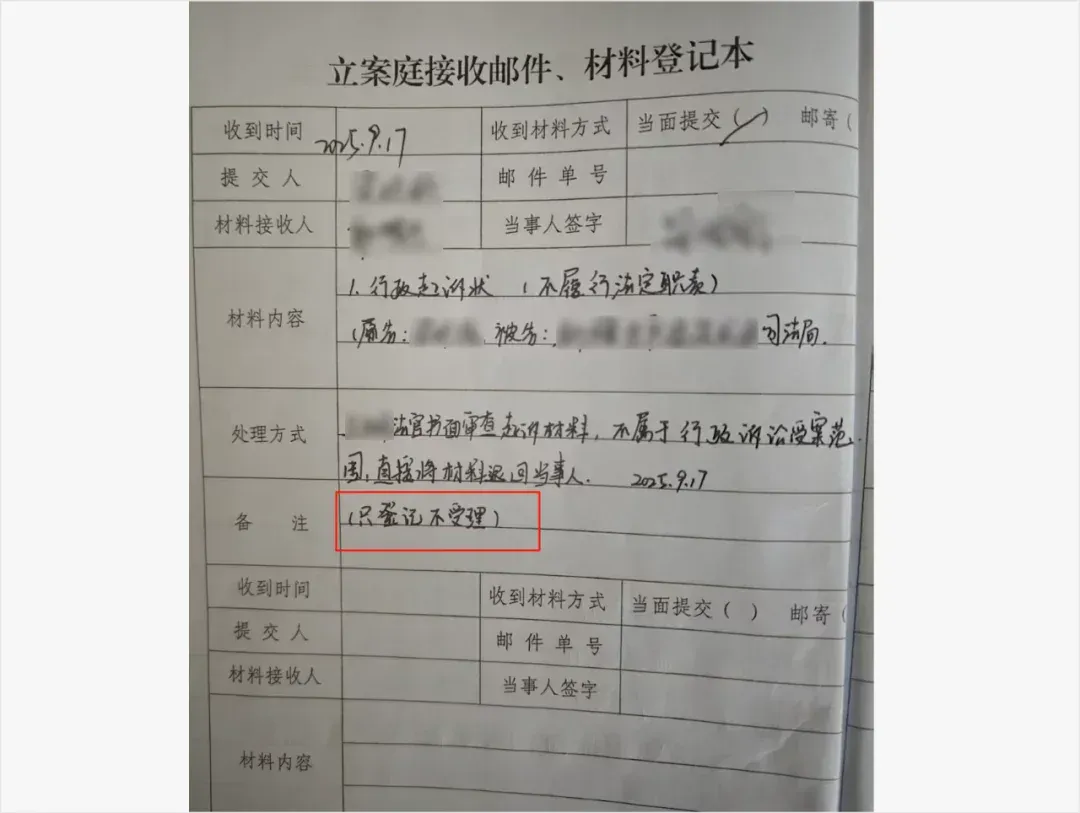 立案庭接收邮件、材料登记本
收到时间 2025.9.17 收到材料方式 当面提交(✓) 邮寄(
提交人 邮件单号
材料接收人 当事人签字
材料内容
1.行政起诉状 (不履行法定职责)
(原告: 被告: 司法局.
处理方式
法官书面审查起诉材料,不属于行政诉讼受案范
围,直接将材料退回当事人. 2025.9.17
备注 (只登记不受理)
收到时间 收到材料方式 当面提交( ) 邮寄(
提交人 邮件单号
材料接收人 当事人签字
材料内容